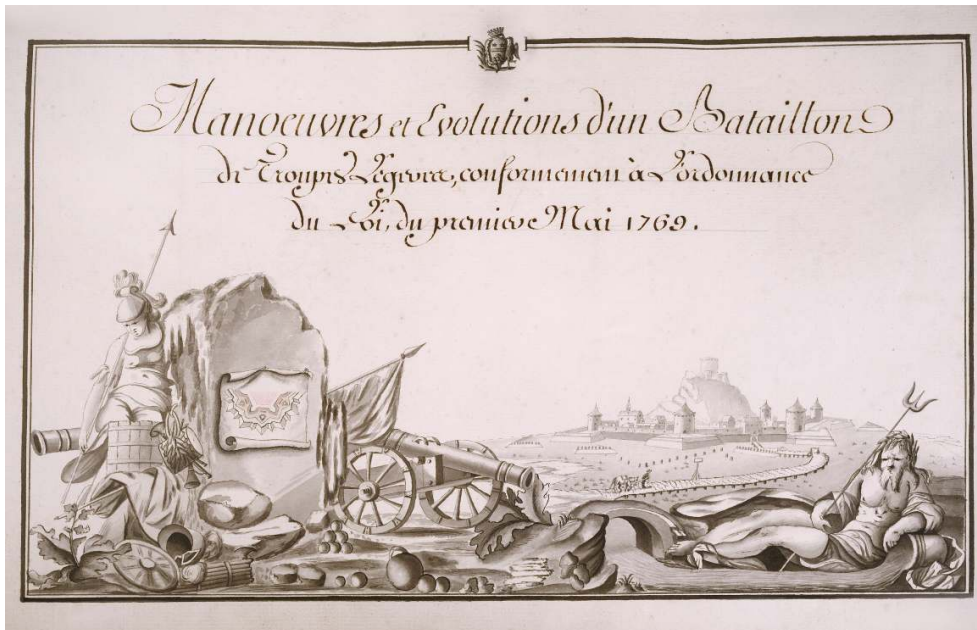 Manoeuvres et Evolutions d'un Bataillon
de Troupes Legeres, conformement à L'ordonnance
du Roi, du premier Mai 1769.